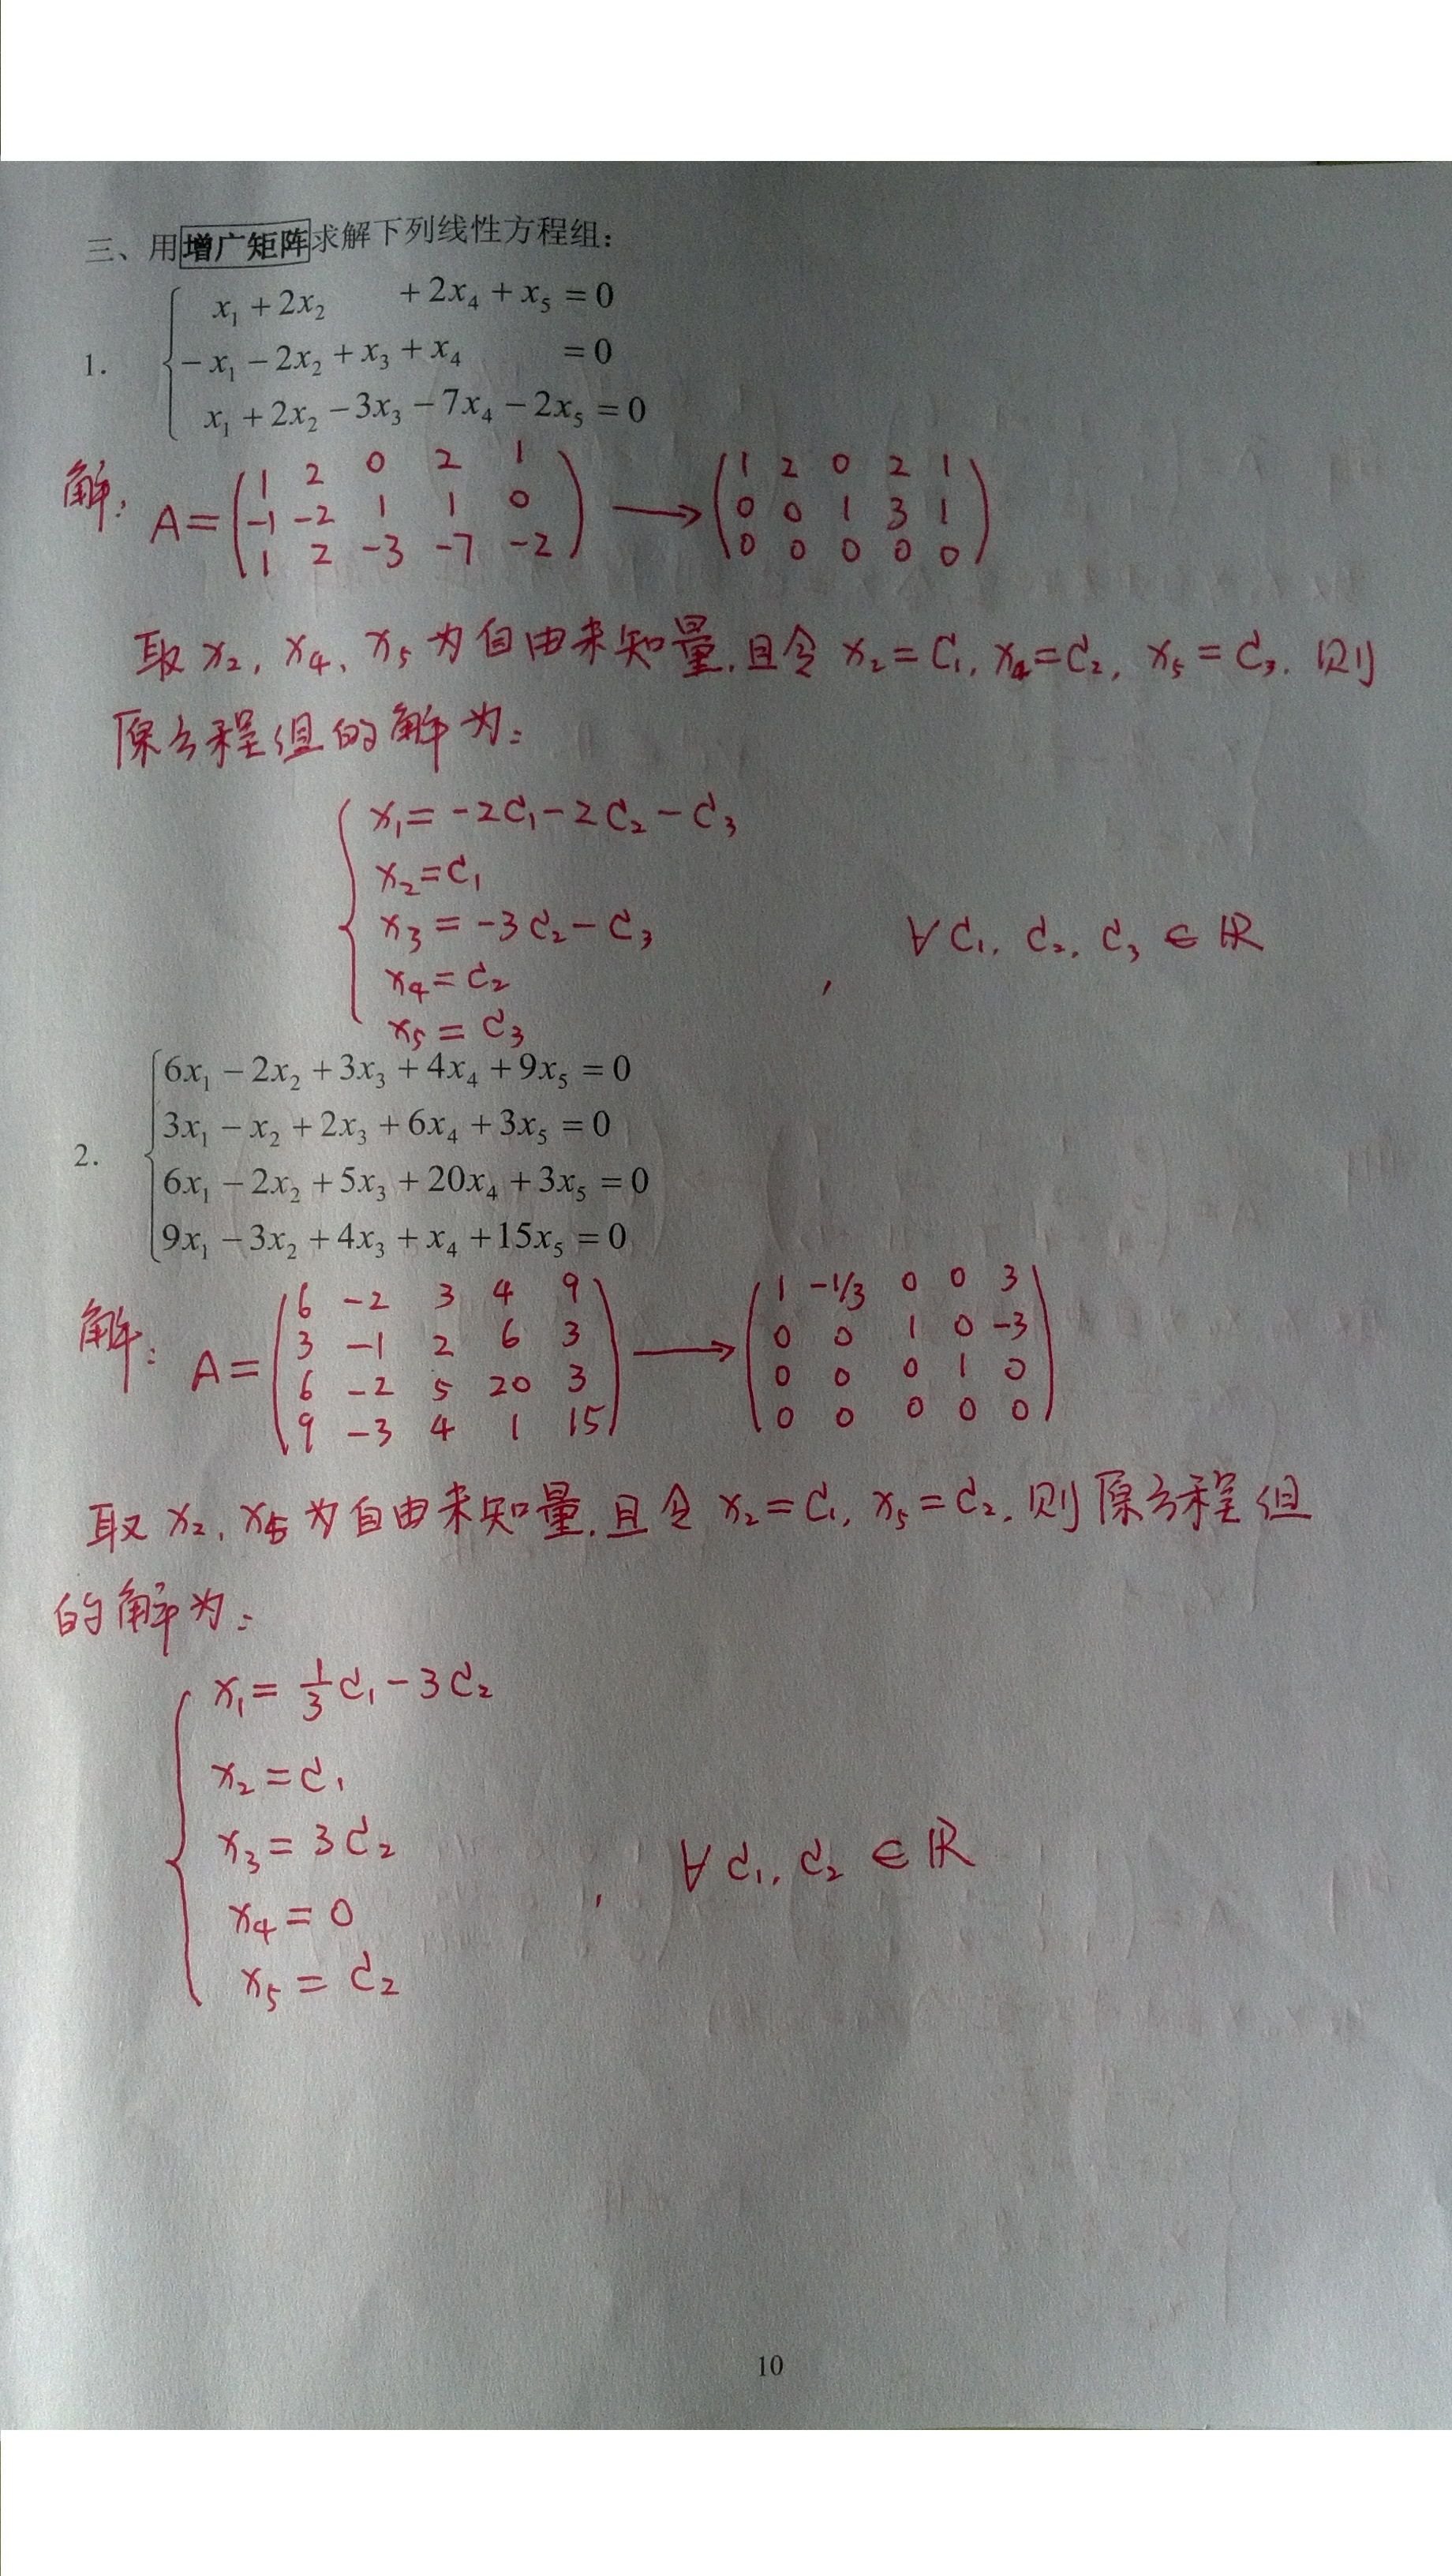 三、用增广矩阵求解下列线性方程组：
1. { x₁ + 2x₂ + 2x₄ + x₅ = 0
−x₁ − 2x₂ + x₃ + x₄ = 0
x₁ + 2x₂ − 3x₃ − 7x₄ − 2x₅ = 0
解: A = ( 1 2 0 2 1 ; −1 −2 1 1 0 ; 1 2 −3 −7 −2 ) → ( 1 2 0 2 1 ; 0 0 1 3 1 ; 0 0 0 0 0 )
取 x₂, x₄, x₅ 为自由未知量, 且令 x₂ = C₁, x₄ = C₂, x₅ = C₃. 则
原方程组的解为:
x₁ = −2C₁ − 2C₂ − C₃
x₂ = C₁
x₃ = −3C₂ − C₃ , ∀ C₁, C₂, C₃ ∈ ℝ
x₄ = C₂
x₅ = C₃
2. { 6x₁ − 2x₂ + 3x₃ + 4x₄ + 9x₅ = 0
3x₁ − x₂ + 2x₃ + 6x₄ + 3x₅ = 0
6x₁ − 2x₂ + 5x₃ + 20x₄ + 3x₅ = 0
9x₁ − 3x₂ + 4x₃ + x₄ + 15x₅ = 0
解: A = ( 6 −2 3 4 9 ; 3 −1 2 6 3 ; 6 −2 5 20 3 ; 9 −3 4 1 15 ) → ( 1 −1/3 0 0 3 ; 0 0 1 0 −3 ; 0 0 0 1 0 ; 0 0 0 0 0 )
取 x₂, x₅ 为自由未知量, 且令 x₂ = C₁, x₅ = C₂. 则原方程组
的解为:
x₁ = 1/3 C₁ − 3C₂
x₂ = C₁
x₃ = 3C₂ , ∀ C₁, C₂ ∈ ℝ
x₄ = 0
x₅ = C₂
10